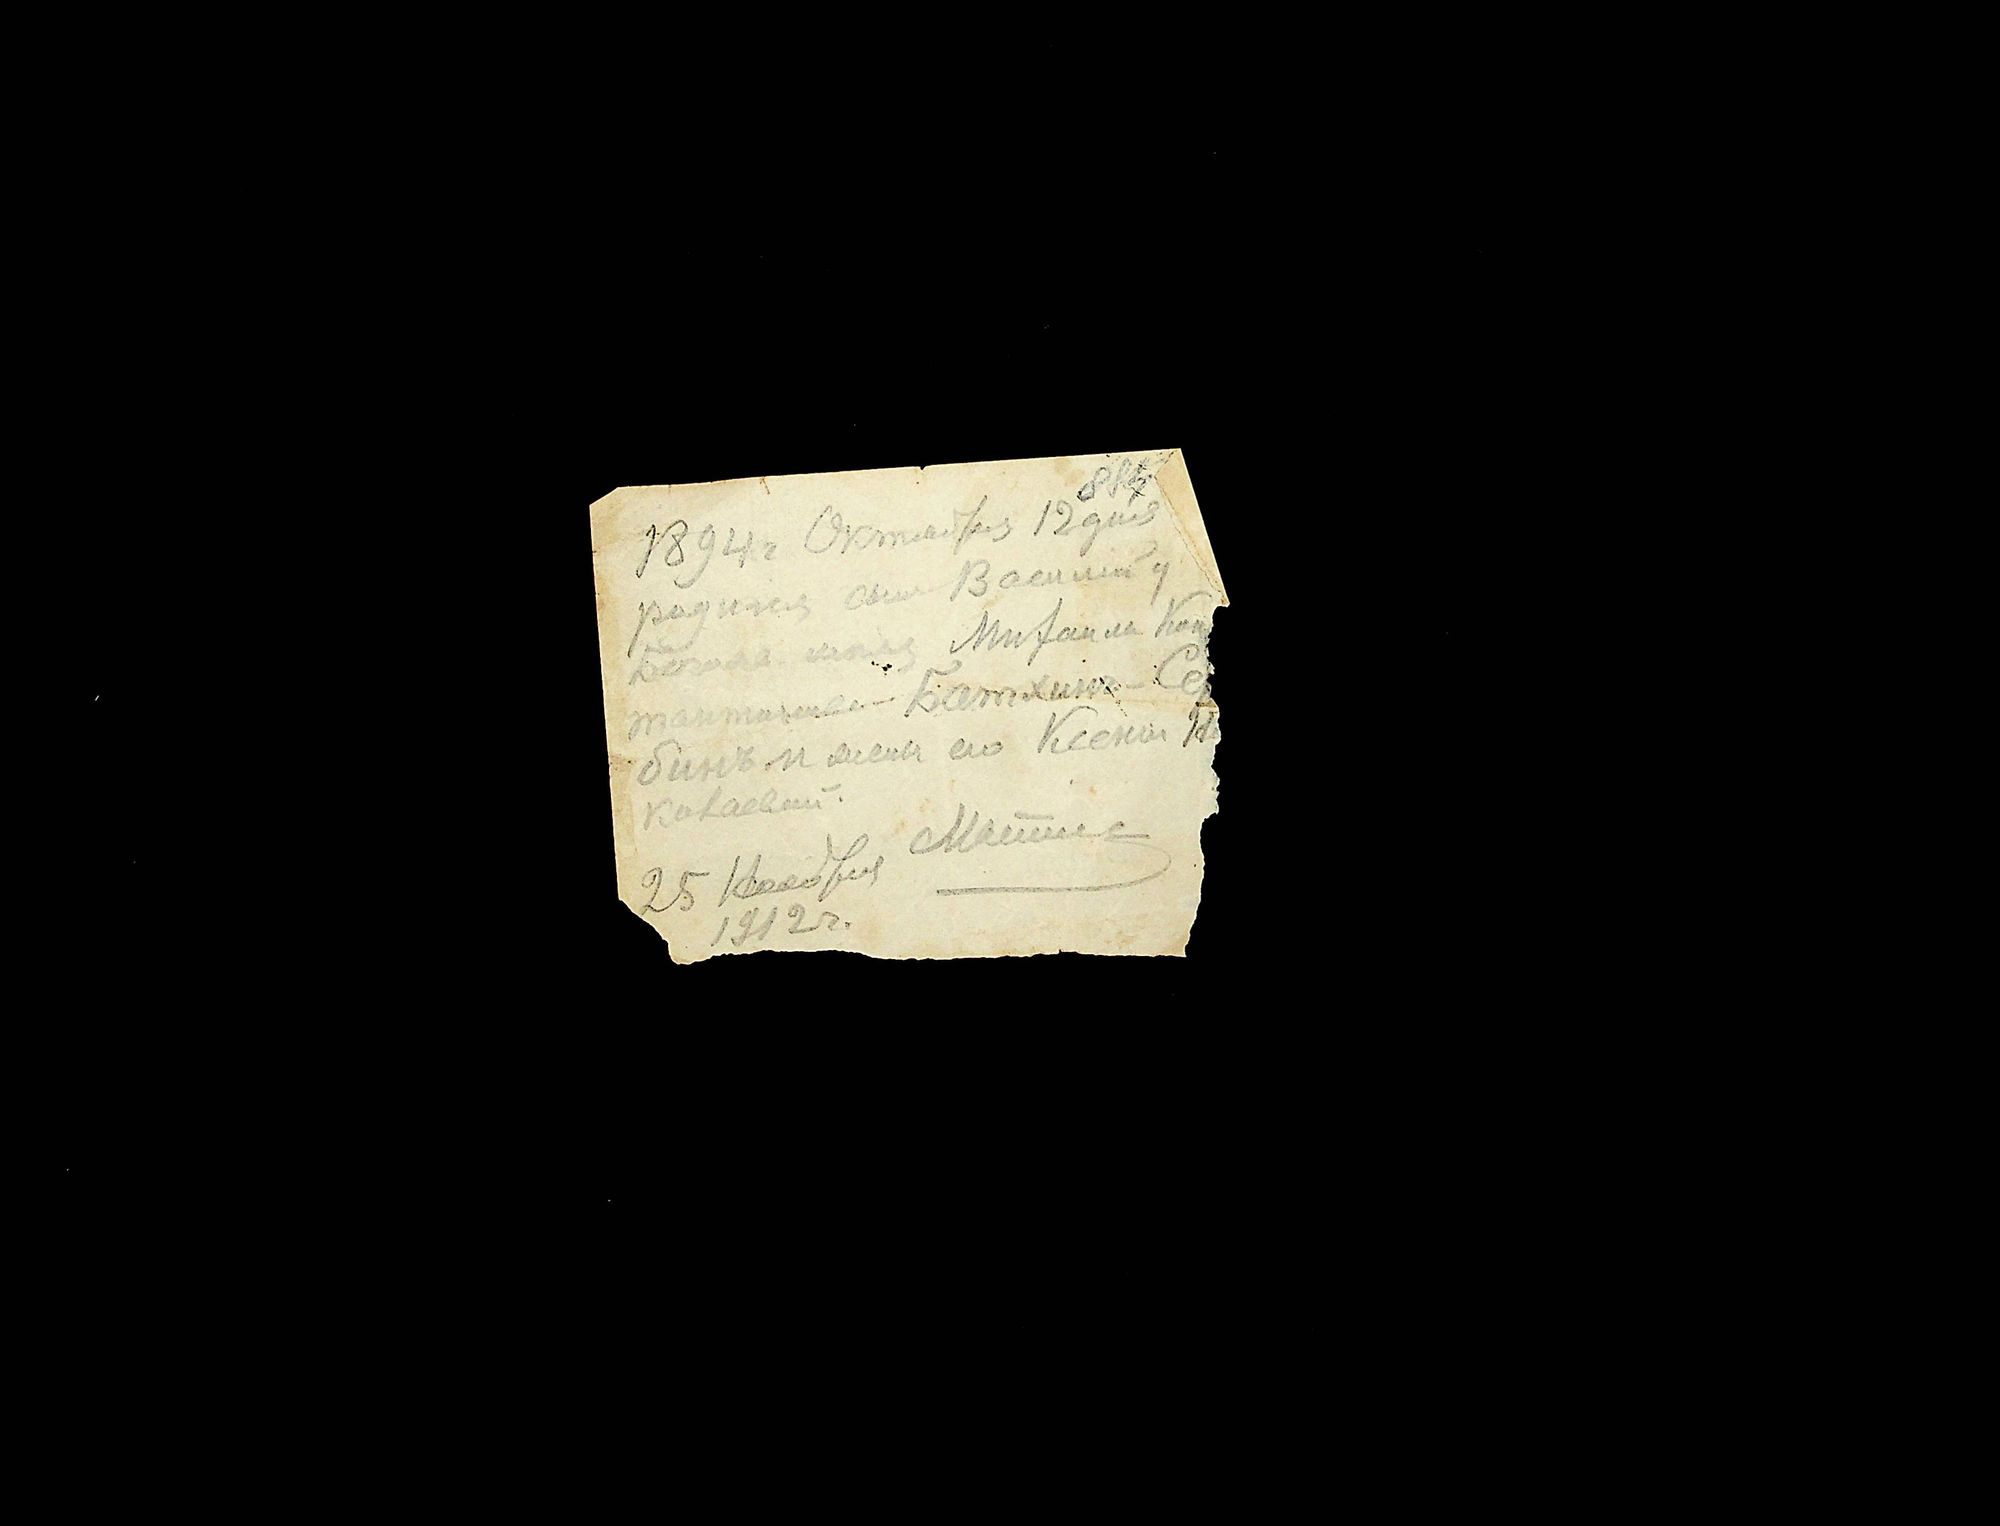 1894 г Октября 12 дня
родился сын Василий у
Михаила Кон
тантинова- Батхинъ- Сер
бинъ и жены его Ксении Ни
колаевны.
25 Ноября
1912 г.